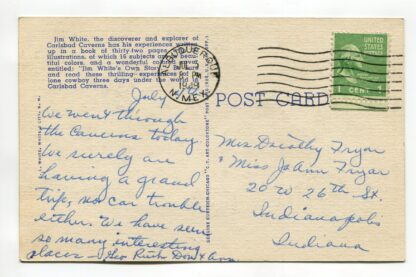 Jim White, the discoverer and explorer of
Carlsbad Caverns has his experiences written
up in a book of thirty-two pages
illustrations, of which 16 subjects are
tiful colors, and a wonderful
entitled: "Jim White's Own Story."
and read these thrilling experiences of
lone cowboy three days under the world
Carlsbad Caverns.
ALBUQUERQUE
N. MEX.
1 CENT 1
POST CARD
July
We went through
the Caverns today.
We surely are
having a grand
trip, no car trouble
either. We have seen
so many interesting
places — Geo Ruth Don & Ann
Miss Dorothy Fryar
& Miss JoAnn Fryar
20 W 26th St.
Indianapolis
Indiana